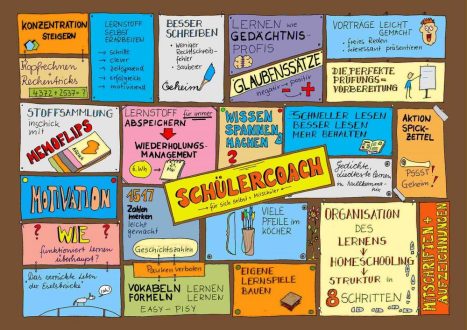 KONZENTRATION
STEIGERN
Kopfrechnen
+ Rechentricks
4372+2537=?
LERNSTOFF
SELBST
ERARBEITEN
→ schnell
→ clever
→ zeitsparend
→ erfolgreich
→ motivierend
BESSER
SCHREIBEN
• Weniger
Rechtschreib-
fehler
• Sauberer
Geheim
LERNEN wie
GEDÄCHTNIS-
PROFIS
GLAUBENSSÄTZE
negativ → positiv
VORTRÄGE LEICHT
GEMACHT
• freies Reden
• interessant präsentieren
DIE PERFEKTE
PRÜFUNGS-
VORBEREITUNG
STOFFSAMMLUNG
ruckzuck
mit
MEMOFLIPS
LERNSTOFF für immer
ABSPEICHERN
WIEDERHOLUNGS-
MANAGEMENT
WISSEN
SPANNEND
MACHEN
?
SCHNELLER LESEN
BESSER LESEN
MEHR BEHALTEN
Gedichte,
Liedtexte lernen
in Nullkomma-
nix
AKTION
SPICK-
ZETTEL
PSSST
Geheim!
SCHÜLERCOACH
für sich selbst + Mitschüler
MOTIVATION
1517
Zahlen
merken
leicht
gemacht
Geschichtszahlen
VIELE
PFEILE im
KÖCHER
ORGANISATION
DES
LERNENS
HOMESCHOOLING
STRUKTUR in
8 SCHRITTEN
MITSCHRIFTEN +
AUFZEICHNUNGEN
? WIE ?
funktioniert lernen
überhaupt?
"Das verrückte Leben
der Eselsbrücke"
Pauken verboten
VOKABELN LERNEN
FORMELN LERNEN
EASY - PISY
EIGENE
LERNSPIELE
BAUEN